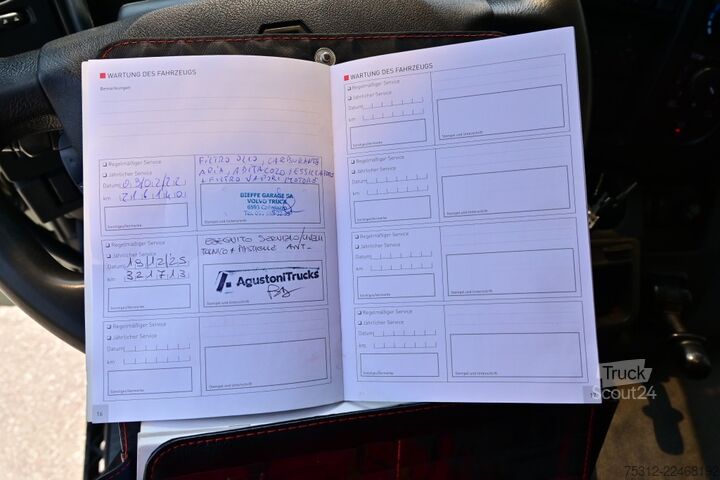 WARTUNG DES FAHRZEUGS
Bemerkungen
Regelmäßiger Service
Jährlicher Service
Datum 03/02/22
km
Sonstiges/Vermerke
FILTRO OLIO, CARBURANTE
ARIA, ABITACOLO, ESSICCATORE
+ FILTRO VAPORI MOTORE
BIEFFE GARAGE SA
VOLVO TRUCK
Stempel und Unterschrift
Regelmäßiger Service
Jährlicher Service
Datum 19/12/25
km 321713
Sonstiges/Vermerke
ESEGUITO SERVIZIO
+ PASTIGLIE ANT.
AgustoniTrucks
Stempel und Unterschrift
Regelmäßiger Service
Jährlicher Service
Datum
km
Sonstiges/Vermerke
Stempel und Unterschrift
16
WARTUNG DES FAHRZEUGS
Regelmäßiger Service
Jährlicher Service
Datum
km
Sonstiges/Vermerke
Stempel und Unterschrift
Regelmäßiger Service
Jährlicher Service
Datum
km
Sonstiges/Vermerke
Stempel und Unterschrift
Regelmäßiger Service
Jährlicher Service
Datum
km
Sonstiges/Vermerke
Stempel und Unterschrift
Regelmäßiger Service
Jährlicher Service
Datum
km
Sonstiges/Vermerke
Stempel und Unterschrift
Truck
Scout24